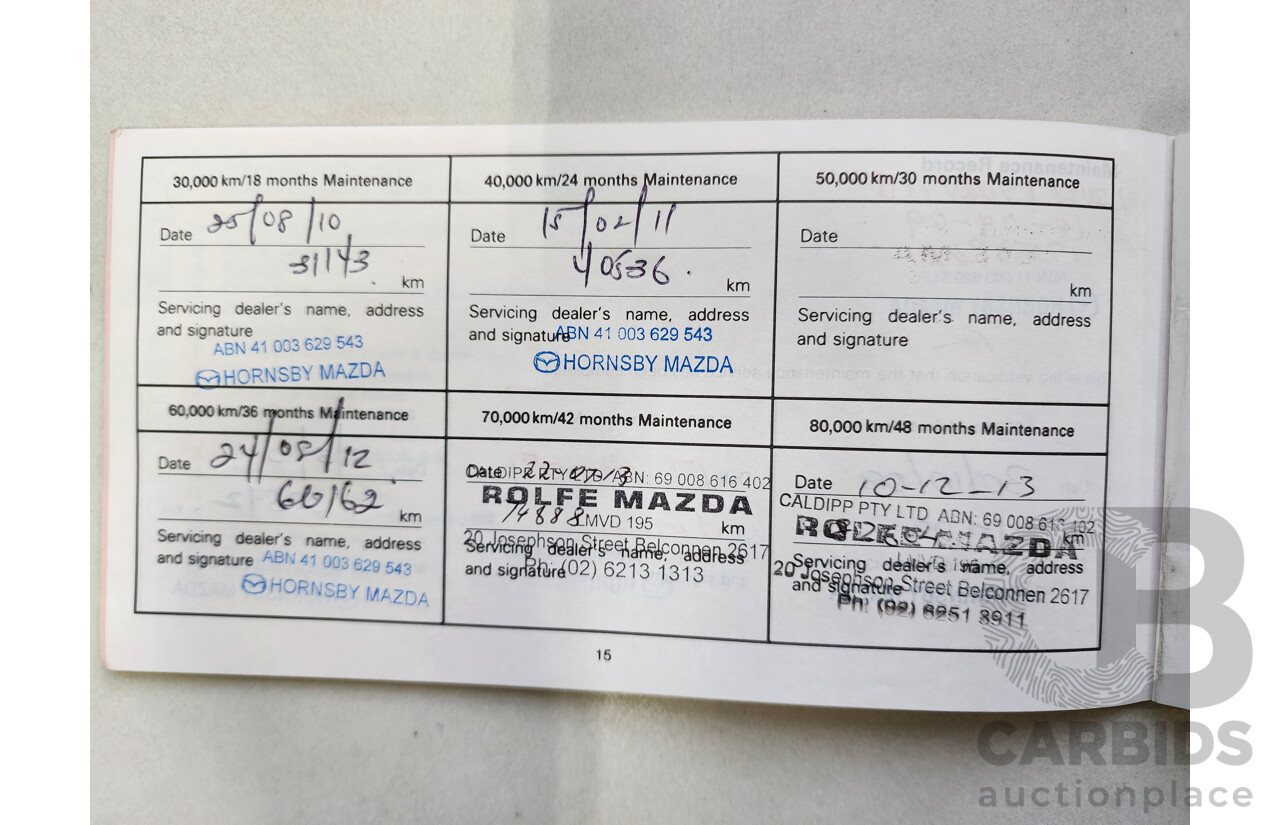 30,000 km/18 months Maintenance
Date 25/08/10
31143 km
Servicing dealer's name, address
and signature
ABN 41 003 629 543
HORNSBY MAZDA
40,000 km/24 months Maintenance
Date 15/02/11
40536 km
Servicing dealer's name, address
and signature
ABN 41 003 629 543
HORNSBY MAZDA
50,000 km/30 months Maintenance
Date
km
Servicing dealer's name, address
and signature
60,000 km/36 months Maintenance
Date 24/08/12
66162 km
Servicing dealer's name, address
and signature
ABN 41 003 629 543
HORNSBY MAZDA
70,000 km/42 months Maintenance
Date
CALDIPP PTY LTD ABN: 69 008 616 402
ROLFE MAZDA
74888 km
LMVD 195
20 Josephson Street Belconnen 2617
Servicing dealer's name, address
and signature
Ph: (02) 6213 1313
80,000 km/48 months Maintenance
Date 10-12-13
CALDIPP PTY LTD ABN: 69 008 616 402
ROLFE MAZDA
km
Servicing dealer's name, address
20 Josephson Street Belconnen 2617
and signature
Ph: (02) 6251 3911
15
CARBIDS
auctionplace